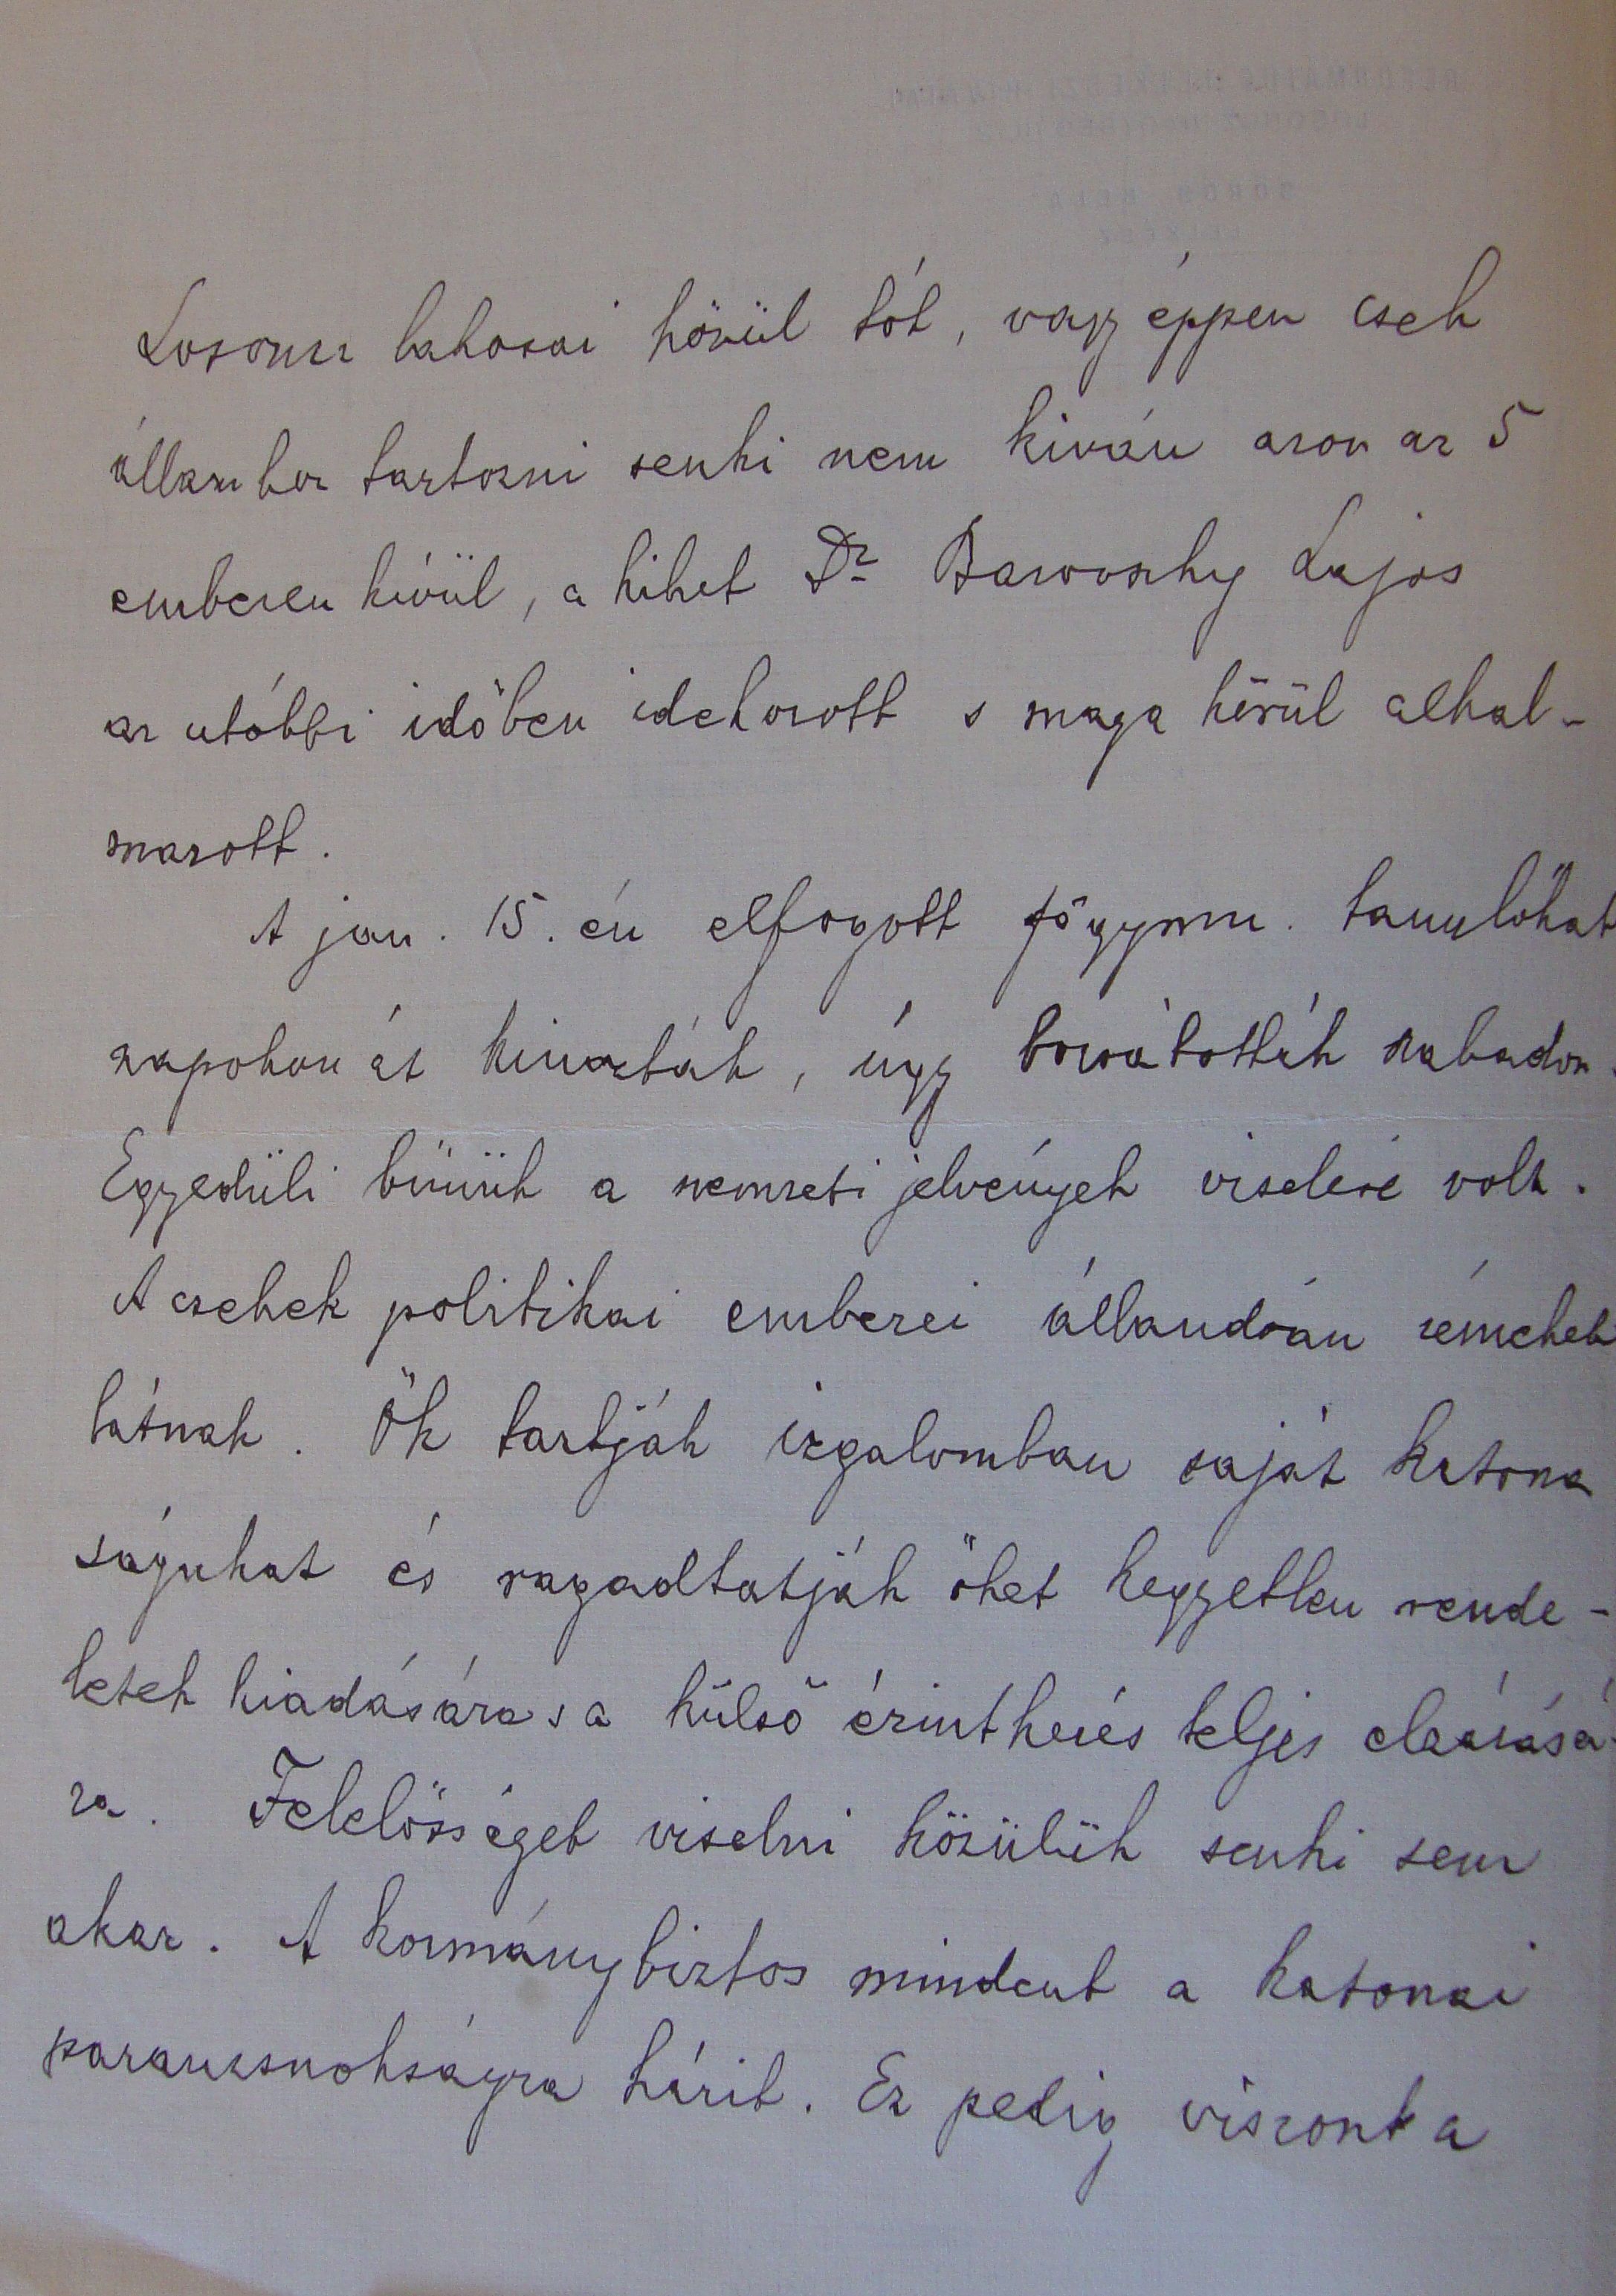 Losoncz lakosai közül tót, vagy éppen cseh
államhoz tartozni senki nem kíván azon az 5
emberen kívül, a kiket Dr Bazovszky Lajos
az utóbbi időben idehozott s maga körül alkal-
mazott.
A jan. 15.-én elfogott főgymn. tanulókat
napokon át kinozták, úgy bocsátották szabadon.
Egyedüli bűnük a nemzeti jelvények viselése volt.
A csehek politikai emberei állandóan rémeket
látnak. Ők tartják izgalomban saját katona
ságukat és ragadtatják őket kegyetlen rende-
letek kiadására s a külső érintkezés teljes elzárásá-
ra. Felelősséget viselni közülük senki sem
akar. A kormánybiztos mindent a katonai
parancsnokságra hárit. Ez pedig viszont a